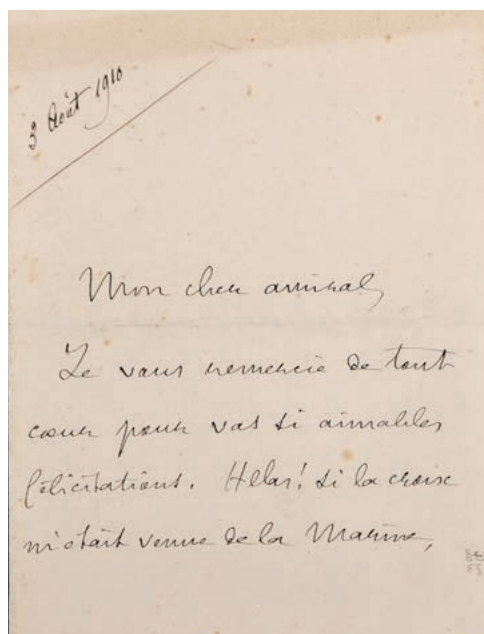 3 Août 1910
Mon cher amiral,
Je vous remercie de tout
cœur pour vos si aimables
félicitations. Hélas! si la croix
m'était venue de la Marine,